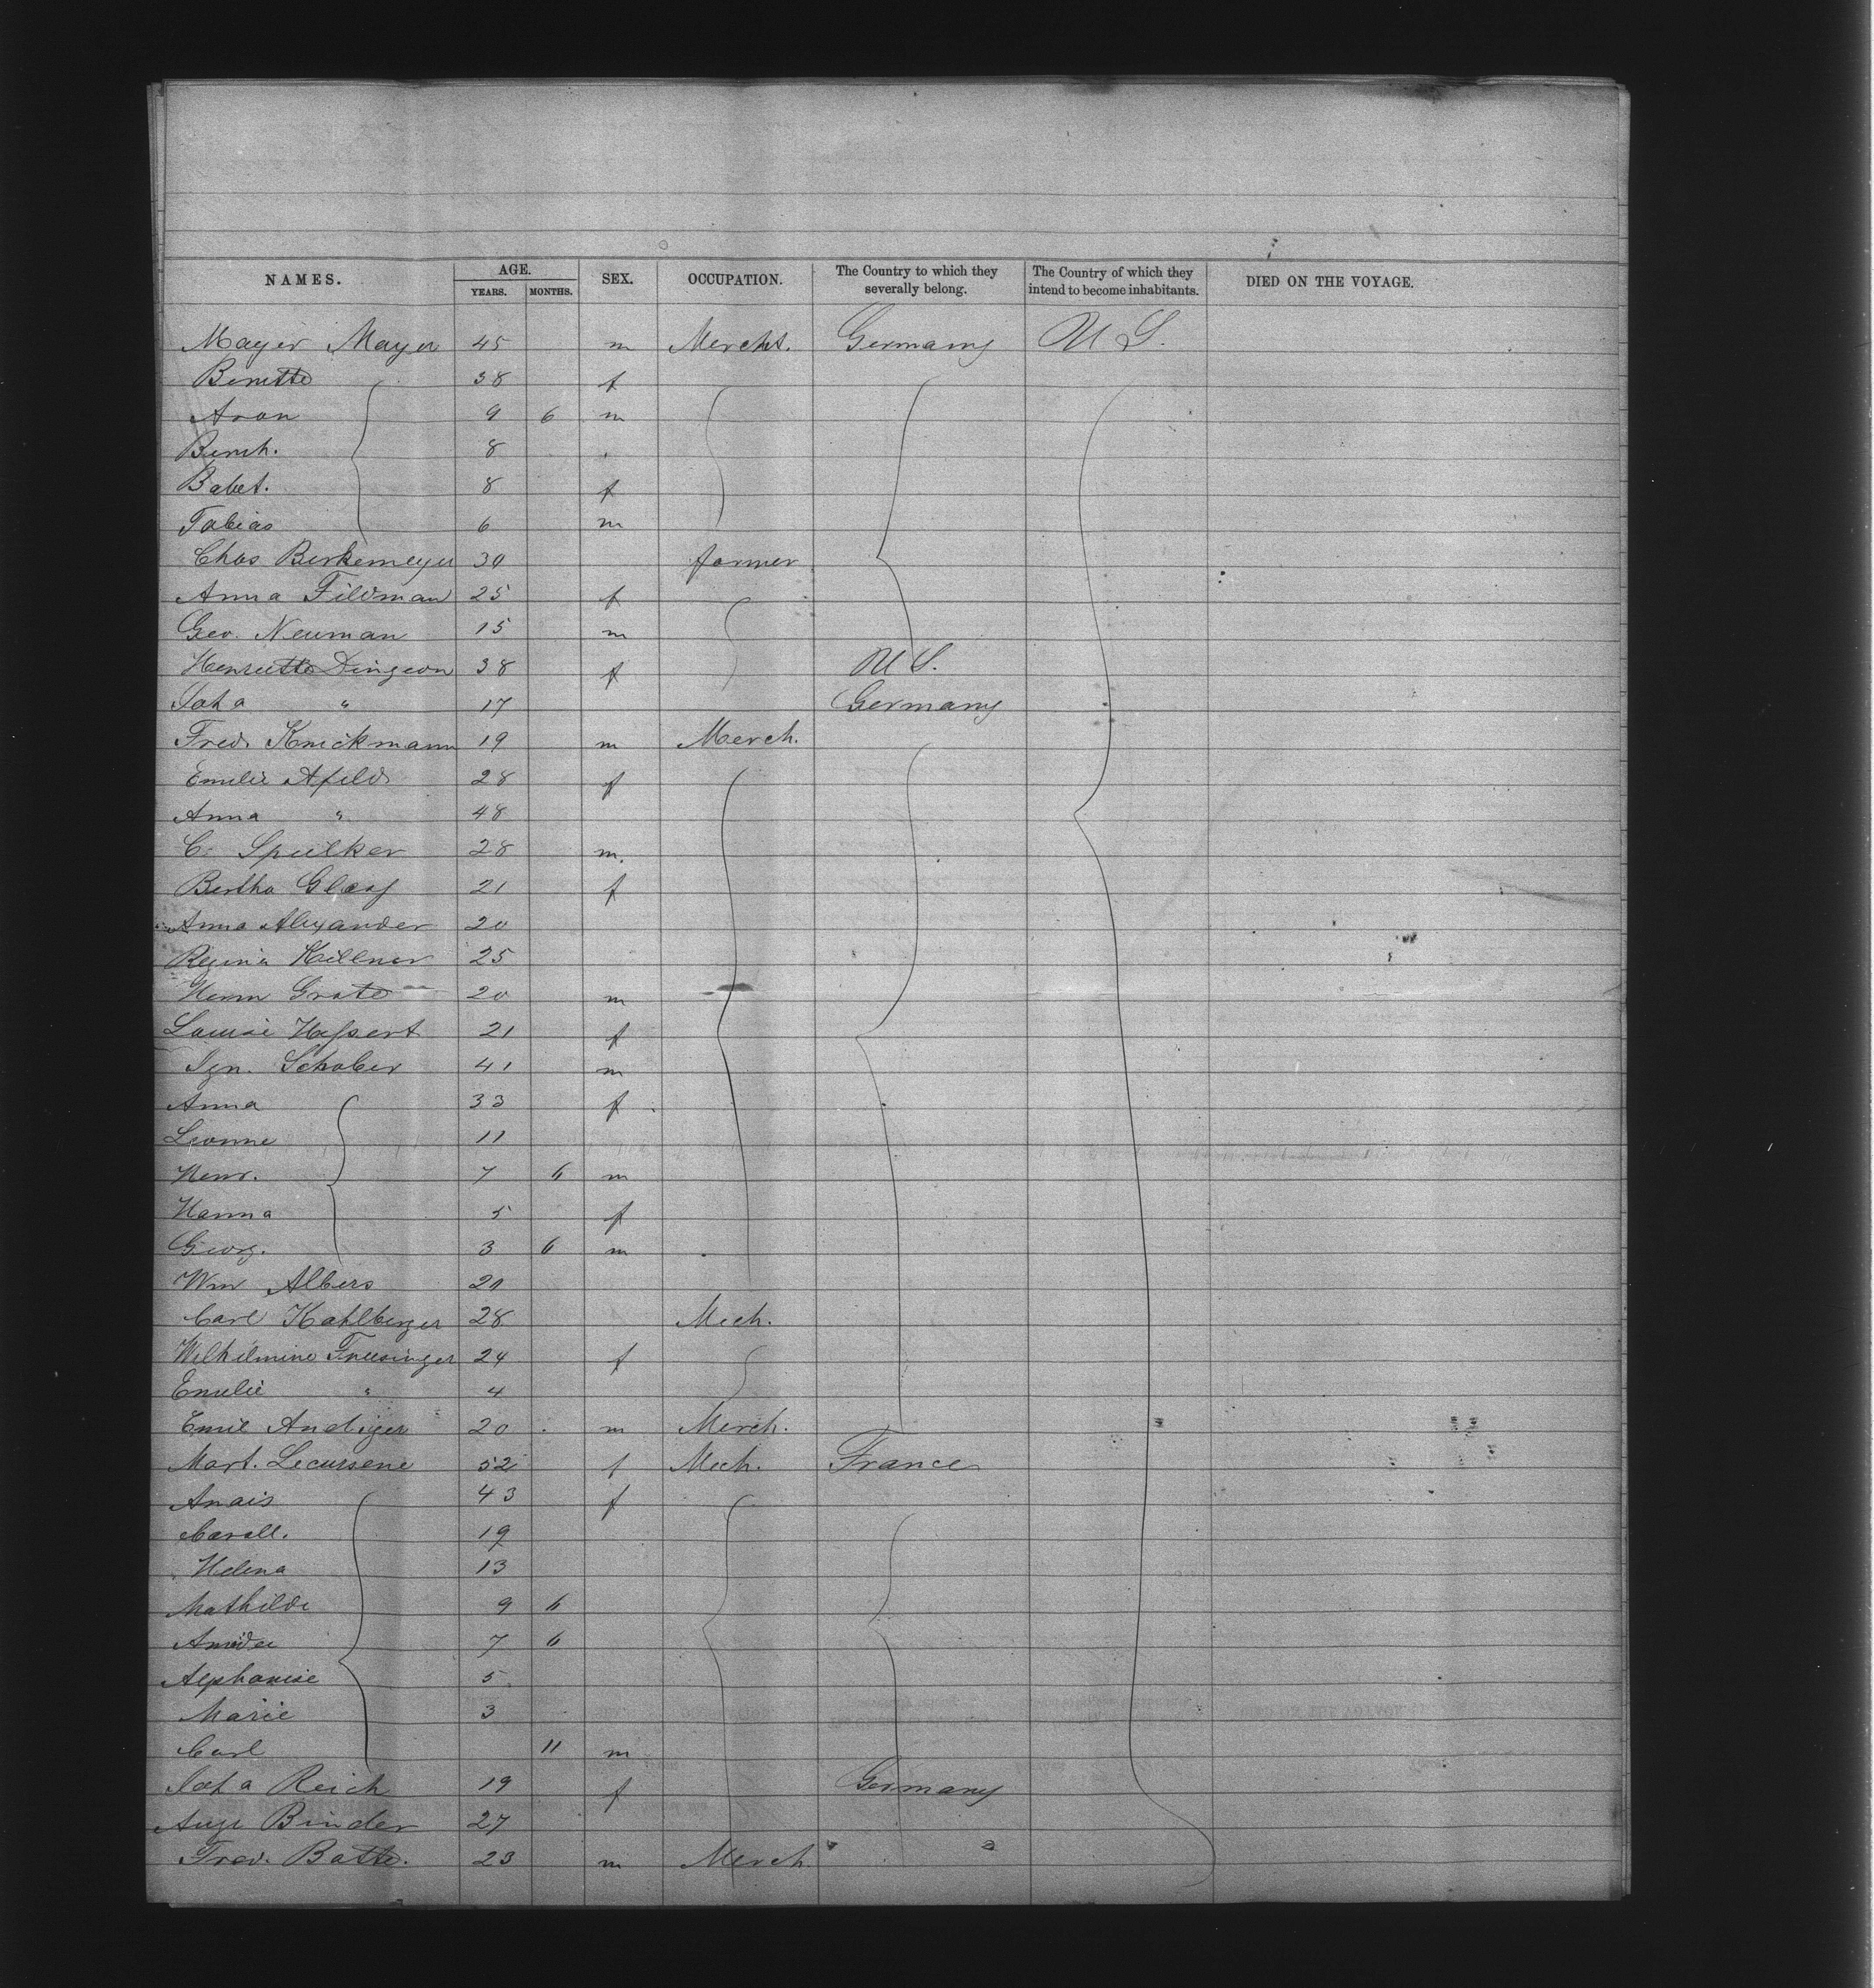 NAMES. AGE. YEARS. MONTHS. SEX. OCCUPATION. The Country to which they severally belong. The Country of which they intend to become inhabitants. DIED ON THE VOYAGE.
Mayer Mayer 45 m Merchts. Germany U S.
Benette 38 f
Aron 9 6 m
Bernh. 8 "
Babet. 8 f
Tobias 6 m
Chas Berkemeyer 30 farmer
Anna Fildman 25 f
Geo. Neuman 15 m
Henriette Dingeon 38 f U S.
Joh a " 17 Germany
Fred. Knickmann 19 m Merch.
Emilie Afeld 28 f
Anna " 48
C. Spielker 28 m.
Bertha Glasf 21 f
Anna Alexander 20
Regina Killner 25
Herm Grote 20 m
Louise Hessert 21 f
Ign. Schober 41 m
Anna 33 f
Leonne 11
Henr. 7 6 m
Hanna 5 f
Georg. 3 6 m
Wm Albers 20
Carl Kahlberger 28 Mech.
Wilhelmine Freesinger 24 f
Emilie " 4
Emil 20 m Merch.
Mart. Lecursene 52 f Mech. France
Anais 43 f
Caroll. 19
Helena 13
Mathilde 9 6
Amédee 7 6
Alphonsie 5
Marie 3
Carl 11 m
Joh a Reich 19 f Germany
Aug. Binder 27
Fred. Batte. 23 m Merch.